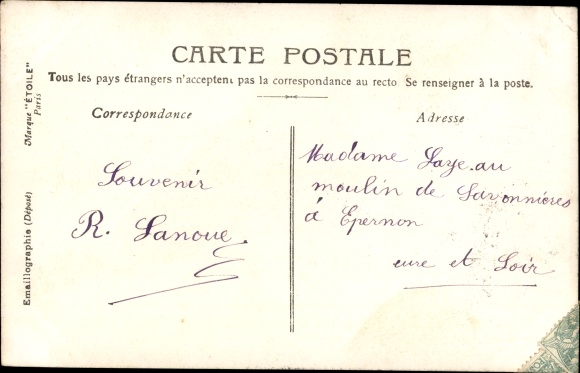 CARTE POSTALE
Tous les pays étrangers n'acceptent pas la correspondance au recto. Se renseigner à la poste.
Correspondance
Adresse
Souvenir
R. Lanoue
Madame Laye au
moulin de Savonnières
à Epernon
eure et Loir
Emaillographie (Déposé)
Marque "ÉTOILE"
Paris